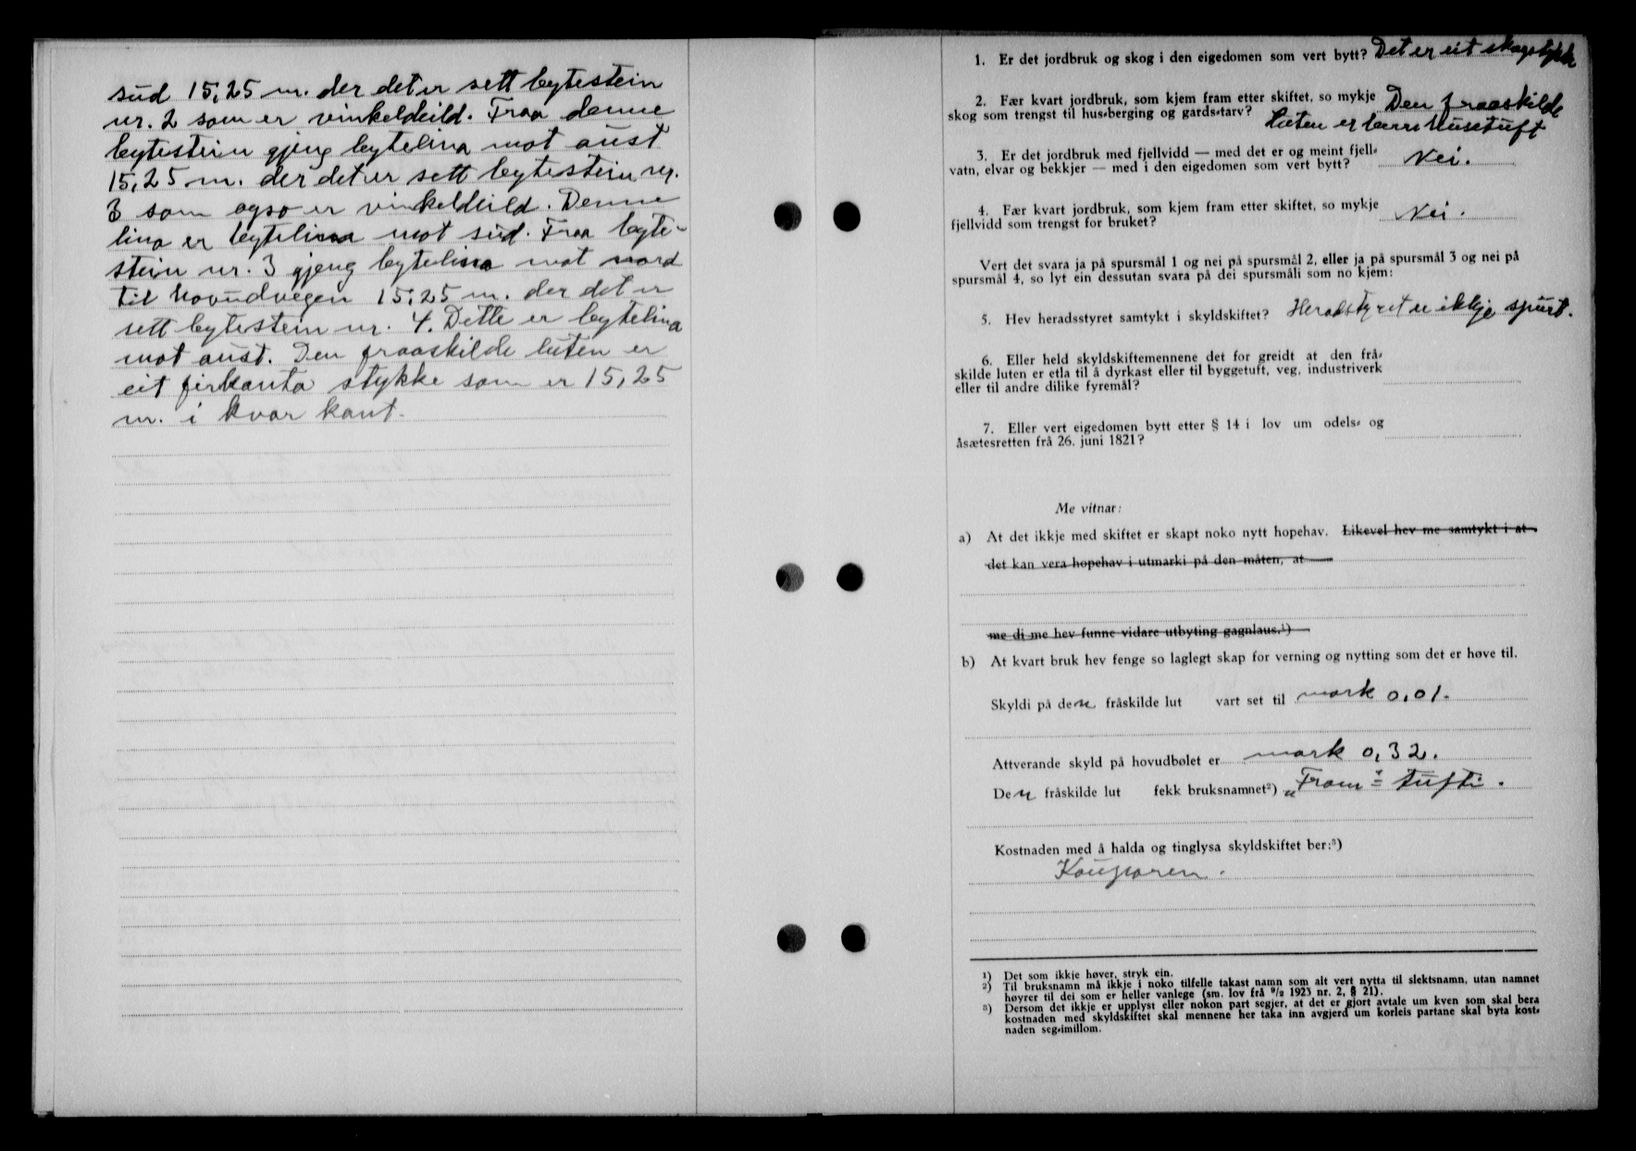 sud 15,25 m. der det er sett bytestein
nr. 2 som er vinkelheild. Fraa denne
bytestein gjeng bytelina mot aust
15,25 m. der det er sett bytestein nr.
3 som ogso er vinkelheild. Denne
lina er bytelina mot sud. Fraa byte-
stein nr. 3 gjeng bytelina mot nord
til hovudvegen 15,25 m. der det er
sett bytestein nr. 4. Dette er bytelina
mot aust. Den fraaskilde luten er
eit firkanta stykke som er 15,25
m. i kvar kant.
1. Er det jordbruk og skog i den eigedomen som vert bytt? Det er eit skogstykke
2. Fær kvart jordbruk, som kjem fram etter skiftet, so mykje Den fraaskilde
skog som trengst til hus-berging og gards-tarv? luten er berre hustuft
3. Er det jordbruk med fjellvidd — med det er og meint fjell-
vatn, elvar og bekkjer — med i den eigedomen som vert bytt? Nei.
4. Fær kvart jordbruk, som kjem fram etter skiftet, so mykje
fjellvidd som trengst for bruket? Nei.
Vert det svara ja på spursmål 1 og nei på spursmål 2, eller ja på spursmål 3 og nei på
spursmål 4, so lyt ein dessutan svara på dei spursmåli som no kjem:
5. Hev heradsstyret samtykt i skyldskiftet? Heradstyret er ikkje spurt.
6. Eller held skyldskiftemennene det for greidt at den frå-
skilde luten er etla til å dyrkast eller til byggetuft, veg, industriverk
eller til andre dilike fyremål?
7. Eller vert eigedomen bytt etter § 14 i lov um odels- og
åsætesretten frå 26. juni 1821?
Me vitnar:
a) At det ikkje med skiftet er skapt noko nytt hopehav. Likevel hev me samtykt i at
det kan vera hopehav i utmarki på den måten, at
me di me hev funne vidare utbyting gagnlaus.¹)
b) At kvart bruk hev fenge so laglegt skap for verning og nytting som det er høve til.
Skyldi på den fråskilde lut vart set til mark 0,01.
Attverande skyld på hovudbølet er mark 0,32.
Den fråskilde lut fekk bruksnamnet²) „Fram-tufti.
Kostnaden med å halda og tinglysa skyldskiftet ber:³)
Kaupåren.
¹) Det som ikkje høver, stryk ein.
²) Til bruksnamn må ikkje i noko tilfelle takast namn som alt vert nytta til slektsnamn, utan namnet
høyrer til dei som er heller vanlege (sm. lov frå ⁹/₂ 1923 nr. 2, § 21).
³) Dersom det ikkje er upplyst eller nokon part segjer, at det er gjort avtale um kven som skal bera
kostnaden med skyldskiftet skal mennene her taka inn avgjerd um korleis partane skal byta kost-
naden seg-imillom.